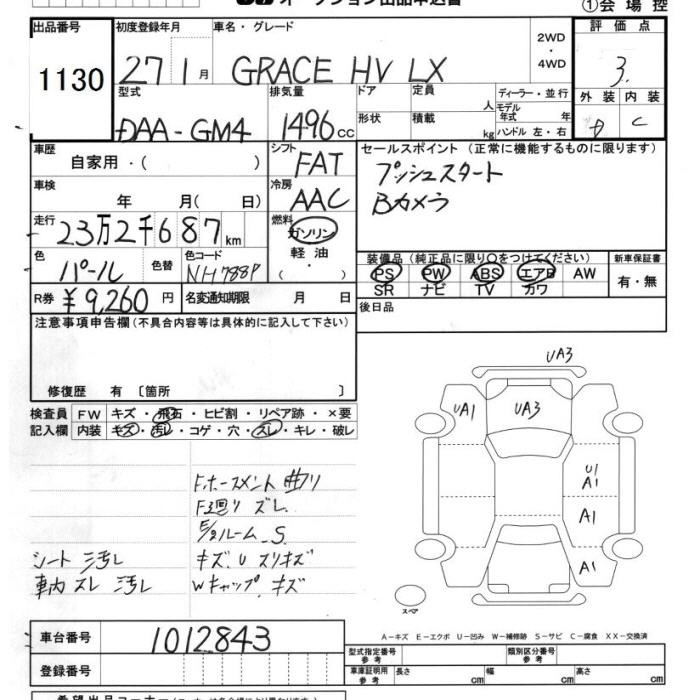 オークション出品申込書
①会場控
出品番号 初度登録年月 車名・グレード 2WD・4WD 評価点
1130 27 1月 GRACE HV LX 3.
型式 排気量 ドア 定員 人 ディーラー・並行 外装 内装
DAA-GM4 1496cc 形状 積載 kg モデル年式 年 ハンドル 左・右 D C
車歴 自家用・( ) シフト FAT セールスポイント (正常に機能するものに限ります)
車検 年 月( 日) 冷房 AAC プッシュスタート
Bカメラ
走行 23万2千687km 燃料 ガソリン 軽油 ・( )
装備品 (純正品に限り〇をつけてください) 新車保証書
色 パール 色替 色コード NH788P PS PW ABS エアB AW 有・無
SR ナビ TV カワ
R券 ¥9,260円 名変通知期限 月 日 後日品
注意事項申告欄(不具合内容等は具体的に記入して下さい)
修復歴 有 〔箇所 〕
検査員 FW キズ・飛石・ヒビ割・リペア跡・×要
記入欄 内装 キズ・汚レ・コゲ・穴・スレ・キレ・破レ
F.ホースメント曲リ
F3廻リ ズレ
E/2ルーム S
シート 汚レ キズ.U スリキズ
車内 スレ 汚レ Wキャップ.キズ
UA3
UA1 UA3
U1
A1
A1
A1
スペア
A−キズ E−エクボ U−凹み W−補修跡 S−サビ C−腐食 XX−交換済
車台番号 1012843 型式指定番号 参考 類別区分番号 参考
登録番号 車庫証明用 参考 長さ cm 幅 cm 高さ cm